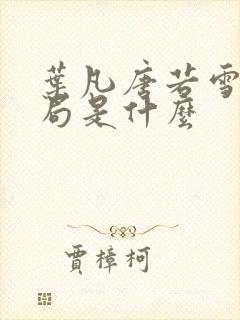 葉凡唐若雪
局是什麼
賈樟柯